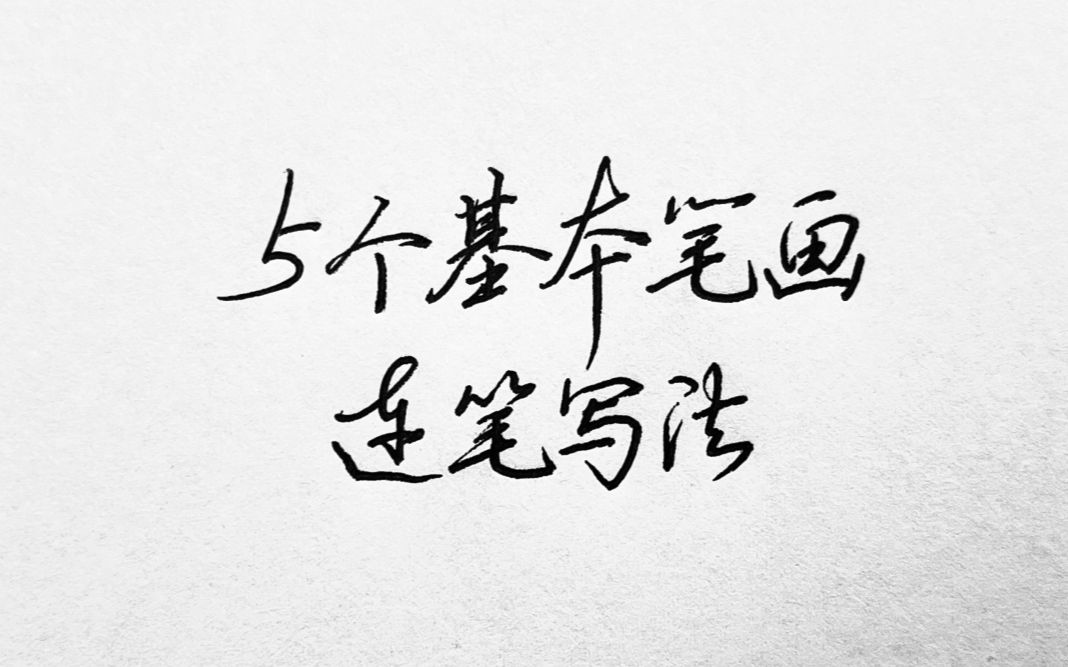 5个基本笔画
连笔写法